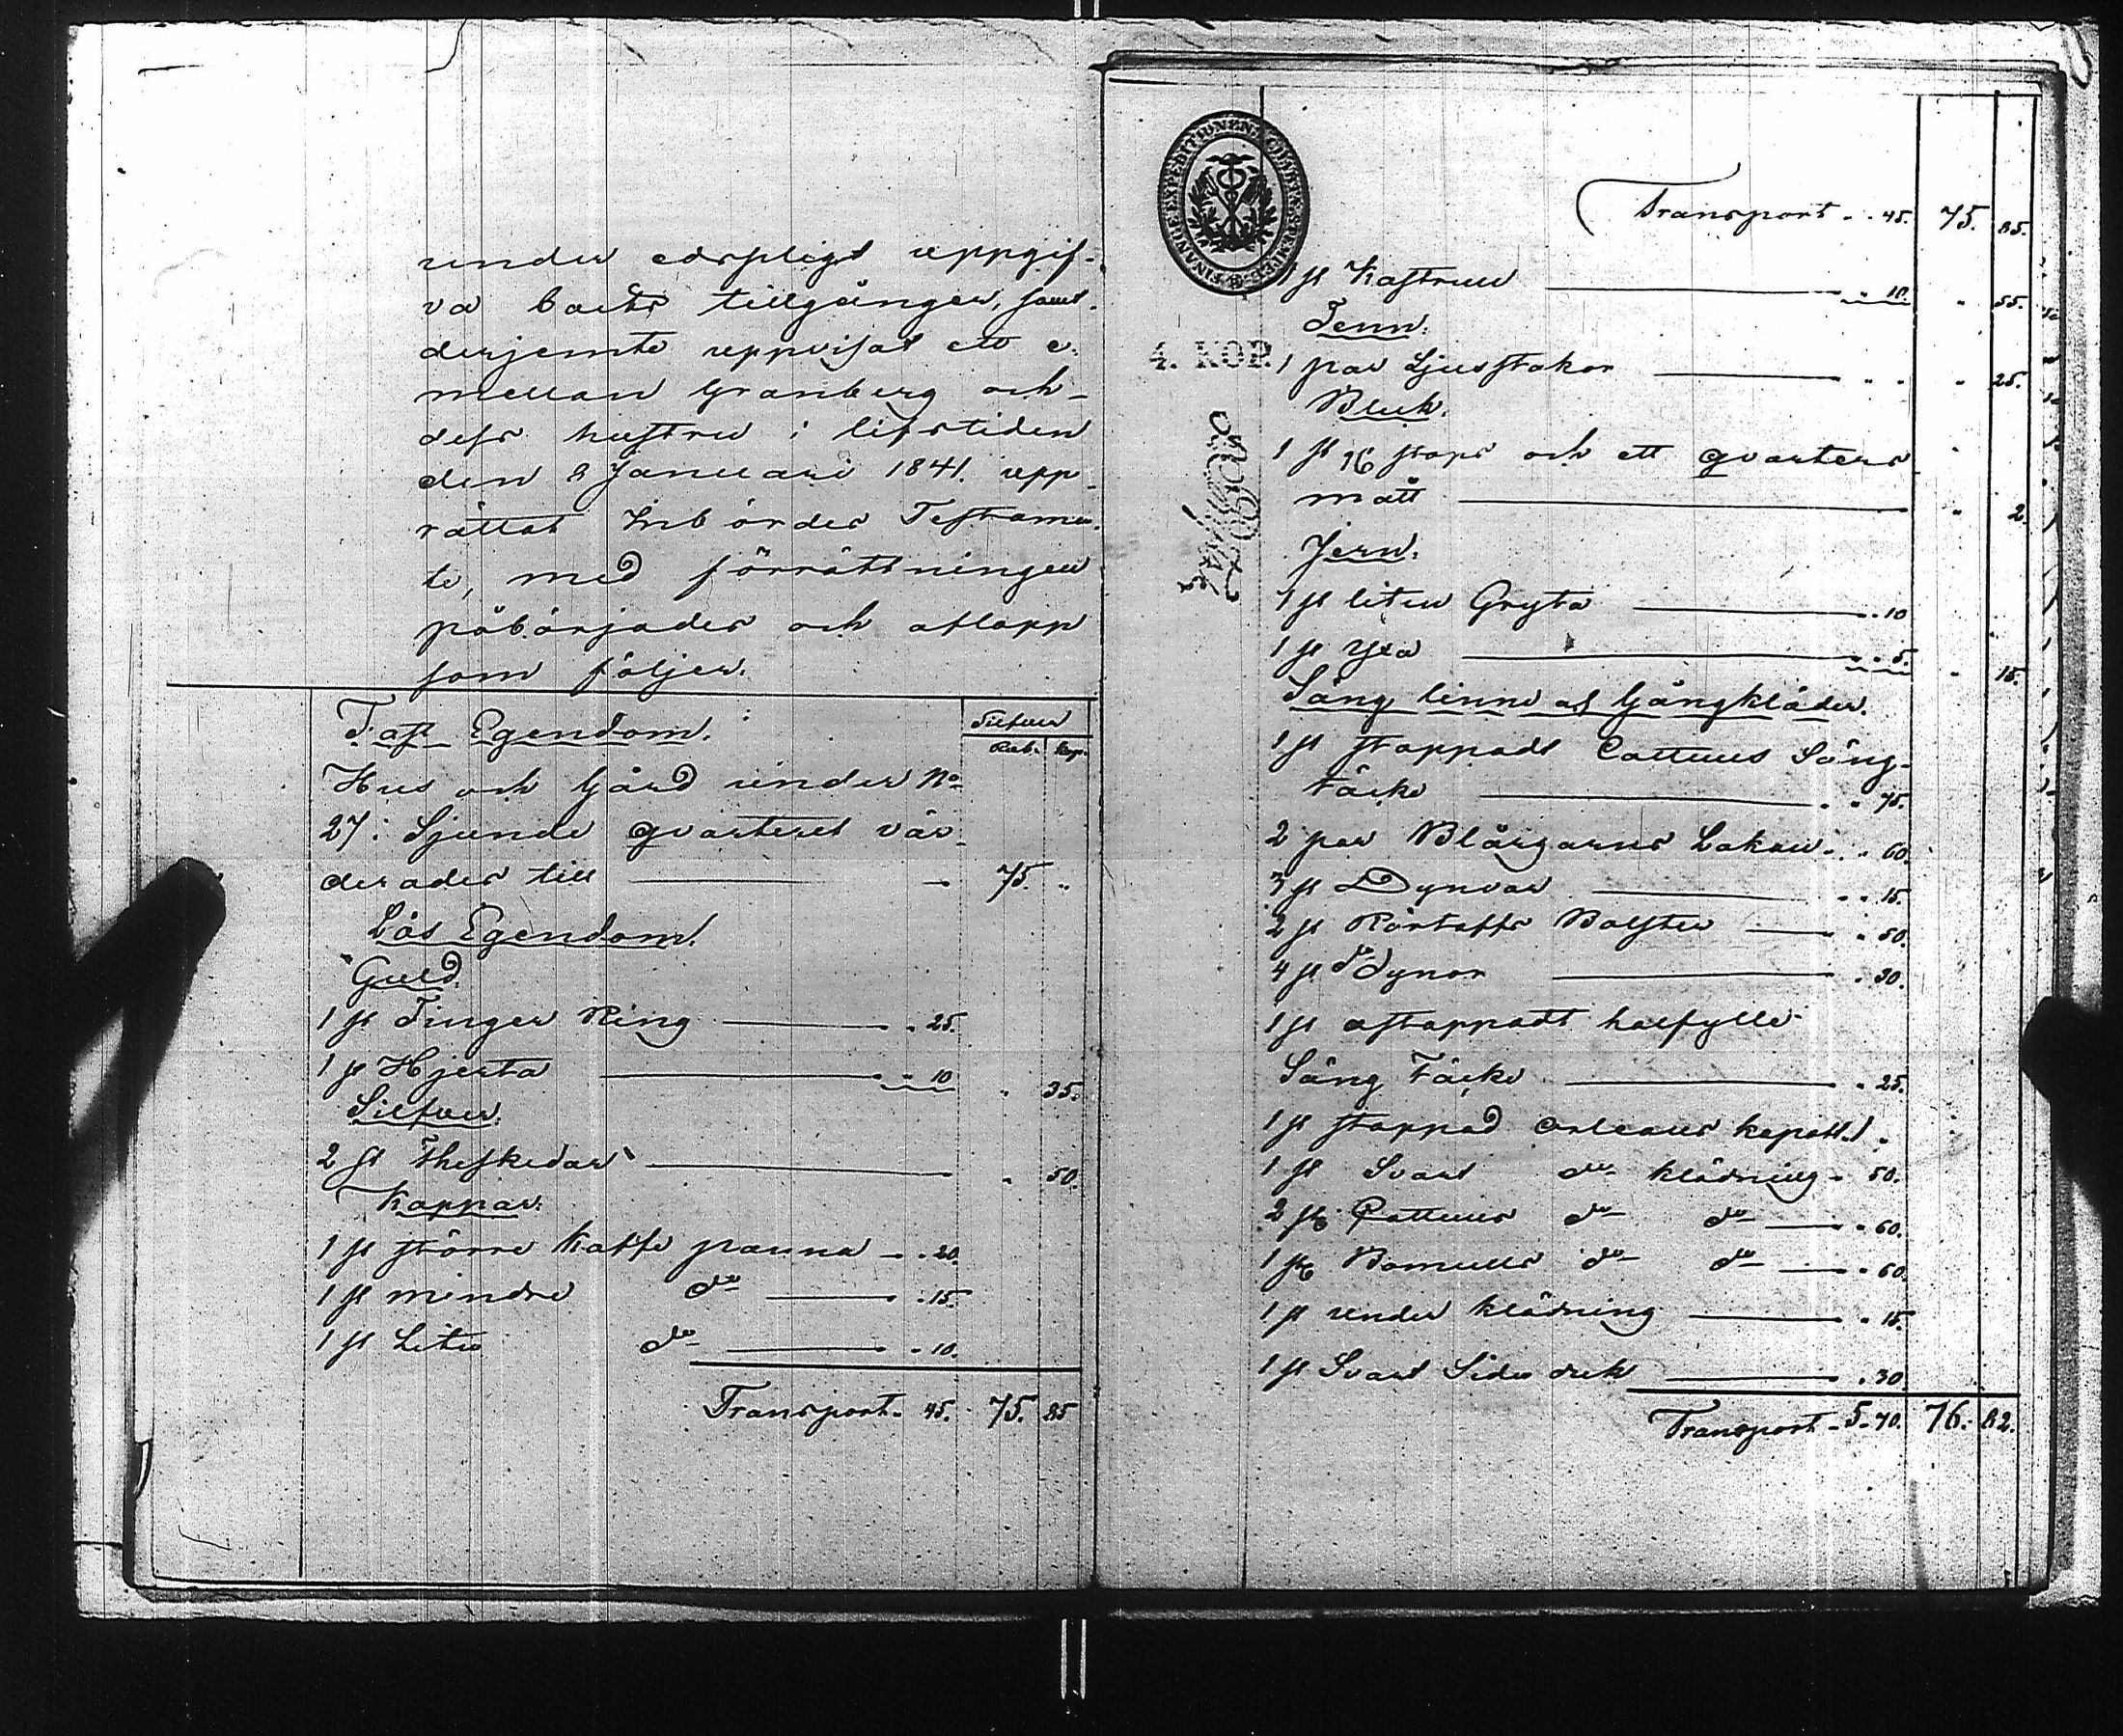 under edspligt uppgif-
va boets tillgångar, samt
derjemte uppvisat ett e.
mellan Granberg och
dess hustru i lifstiden
den 8 Januari 1841. upp-
rättat Inbördes Testamen-
te, med förrättningen
påbörjades och aflopp
som följer.
Fast Egendom.
Silfver
Rub. kop.
Hus och Gård under No
27 i Sjunde qvarteret vär-
derades till 75. "
Lös Egendom.
Guld.
1 st Finger Ring " 25.
1 st Hjerta " 10 " 35.
Silfver.
2 st Theskedar " 50.
Koppar.
1 st större Kaffe panna " 20.
1 st mindre do " 15.
1 st Liten do " 10.
Transport. 45. 75. 85
FINANCE EXPEDITIONENS
4. KOP.
Transport " 45. 75. 85.
1 st Kastrull " 10. " 55.
Tenn.
1 par Ljusstakar " " " 25.
Bleck.
1 st 16 stops och ett qvarters
mått " 2.
Jern.
1 st liten Gryta " 10
1 st Yxa " 5. " 15.
Säng linne och Gångkläder.
1 st stoppadt Cattuns Säng-
täcke " 75.
2 par Blårgarns Lakan " 60.
3 st Dynvar " 15.
2 st Bolster " 50.
4 st do Dynor " 30.
1 st ostoppadt halfylle
Säng Täcke " 25.
1 st stoppad orleans kapott 1 "
1 st Svart do klädning " 50.
2 st Cattuns do do " 60.
1 st Bomulls do do " 60.
1 st under klädning " 15.
1 st Svart Siden duk " 30
Transport 5. 70. 76. 82.